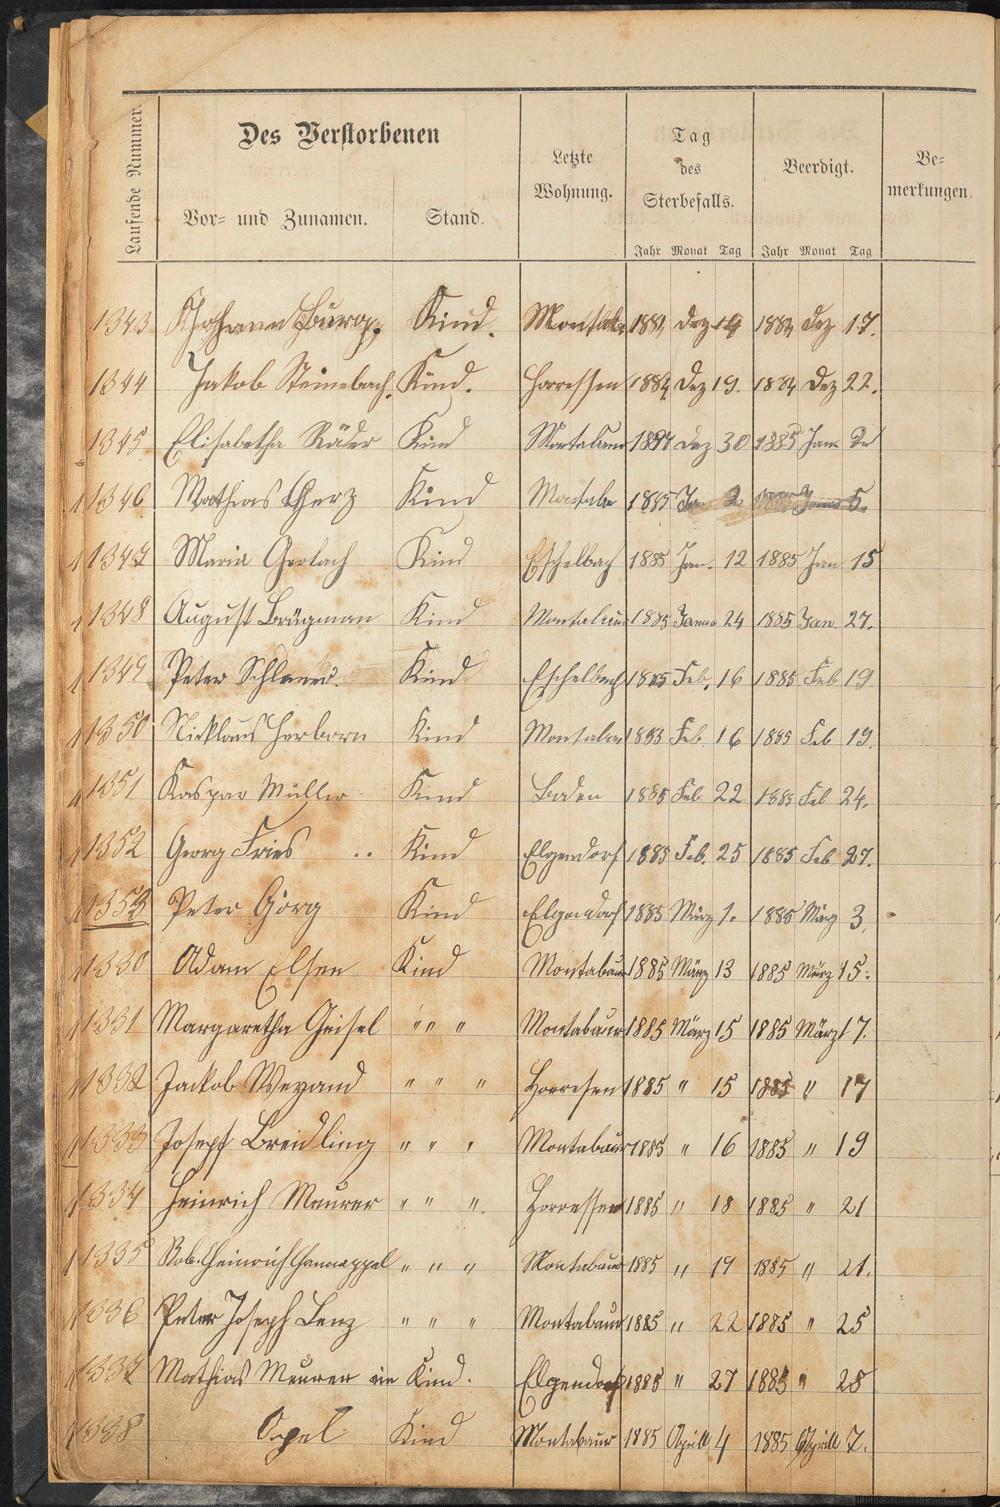 Laufende Nummer.
Des Verstorbenen
Vor- und Zunamen.
Stand.
Letzte
Wohnung.
Tag
des
Sterbefalls.
Jahr Monat Tag
Beerdigt.
Jahr Monat Tag
Be-
merkungen.
1343 Johann Burg Kind. Montab 1884 Dez 14 1884 Dez 17.
1344 Jakob Steinebach. Kind. Horressen 1884 Dez 19. 1884 Dez 22.
1345 Elisabetha Räder Kind Montabaur 1884 Dez 30 1885 Jan
1346 Mathias Gerz Kind Montabr 1885 Jan 2 5.
1347 Maria Gerlach Kind Eschelbach 1885 Jan. 12 1885 Jan 15
1348 August Brügman Kind Montabaur 1885 Janua 24 1885 Jan. 27.
1349 Peter Kind Eschelbach 1885 Feb. 16 1885 Feb 19
1350 Nicklaus Herborn Kind Montabau 1885 Feb 16 1885 Feb 19.
1351 Kaspar Müller Kind Boden 1885 Feb 22 1885 Feb 24.
1352 Georg Fries Kind Elgendorf 1885 Feb. 25 1885 Feb 27.
1353 Peter Görg Kind Elgendorf 1885 März 1. 1885 März 3.
1330 Adam Elsen Kind Montabaur 1885 März 13 1885 März 15.
1331 Margaretha Geisel " " " Montabaur 1885 März 15 1885 März 17.
1332 Jackob Weyand " " " Horresen 1885 " 15 1885 " 17
1333 Joseph Breidling " " " Montabaur 1885 " 16 1885 " 19
1334 Heinrich Meurer " " ". Horressen 1885 " 18 1885 " 21
1335 Rob. Heinrich Hannappel " " " Montabaur 1885 " 19 1885 " 21.
1336 Peter Joseph Lenz " " " Montabaur 1885 " 22 1885 " 25
1337 Mathias Meurer ein Kind. Elgendorf 1885 " 27 1885 " 28
1338 Opel Kind Montabaur 1885 Aprill 4 1885 Aprill 7.